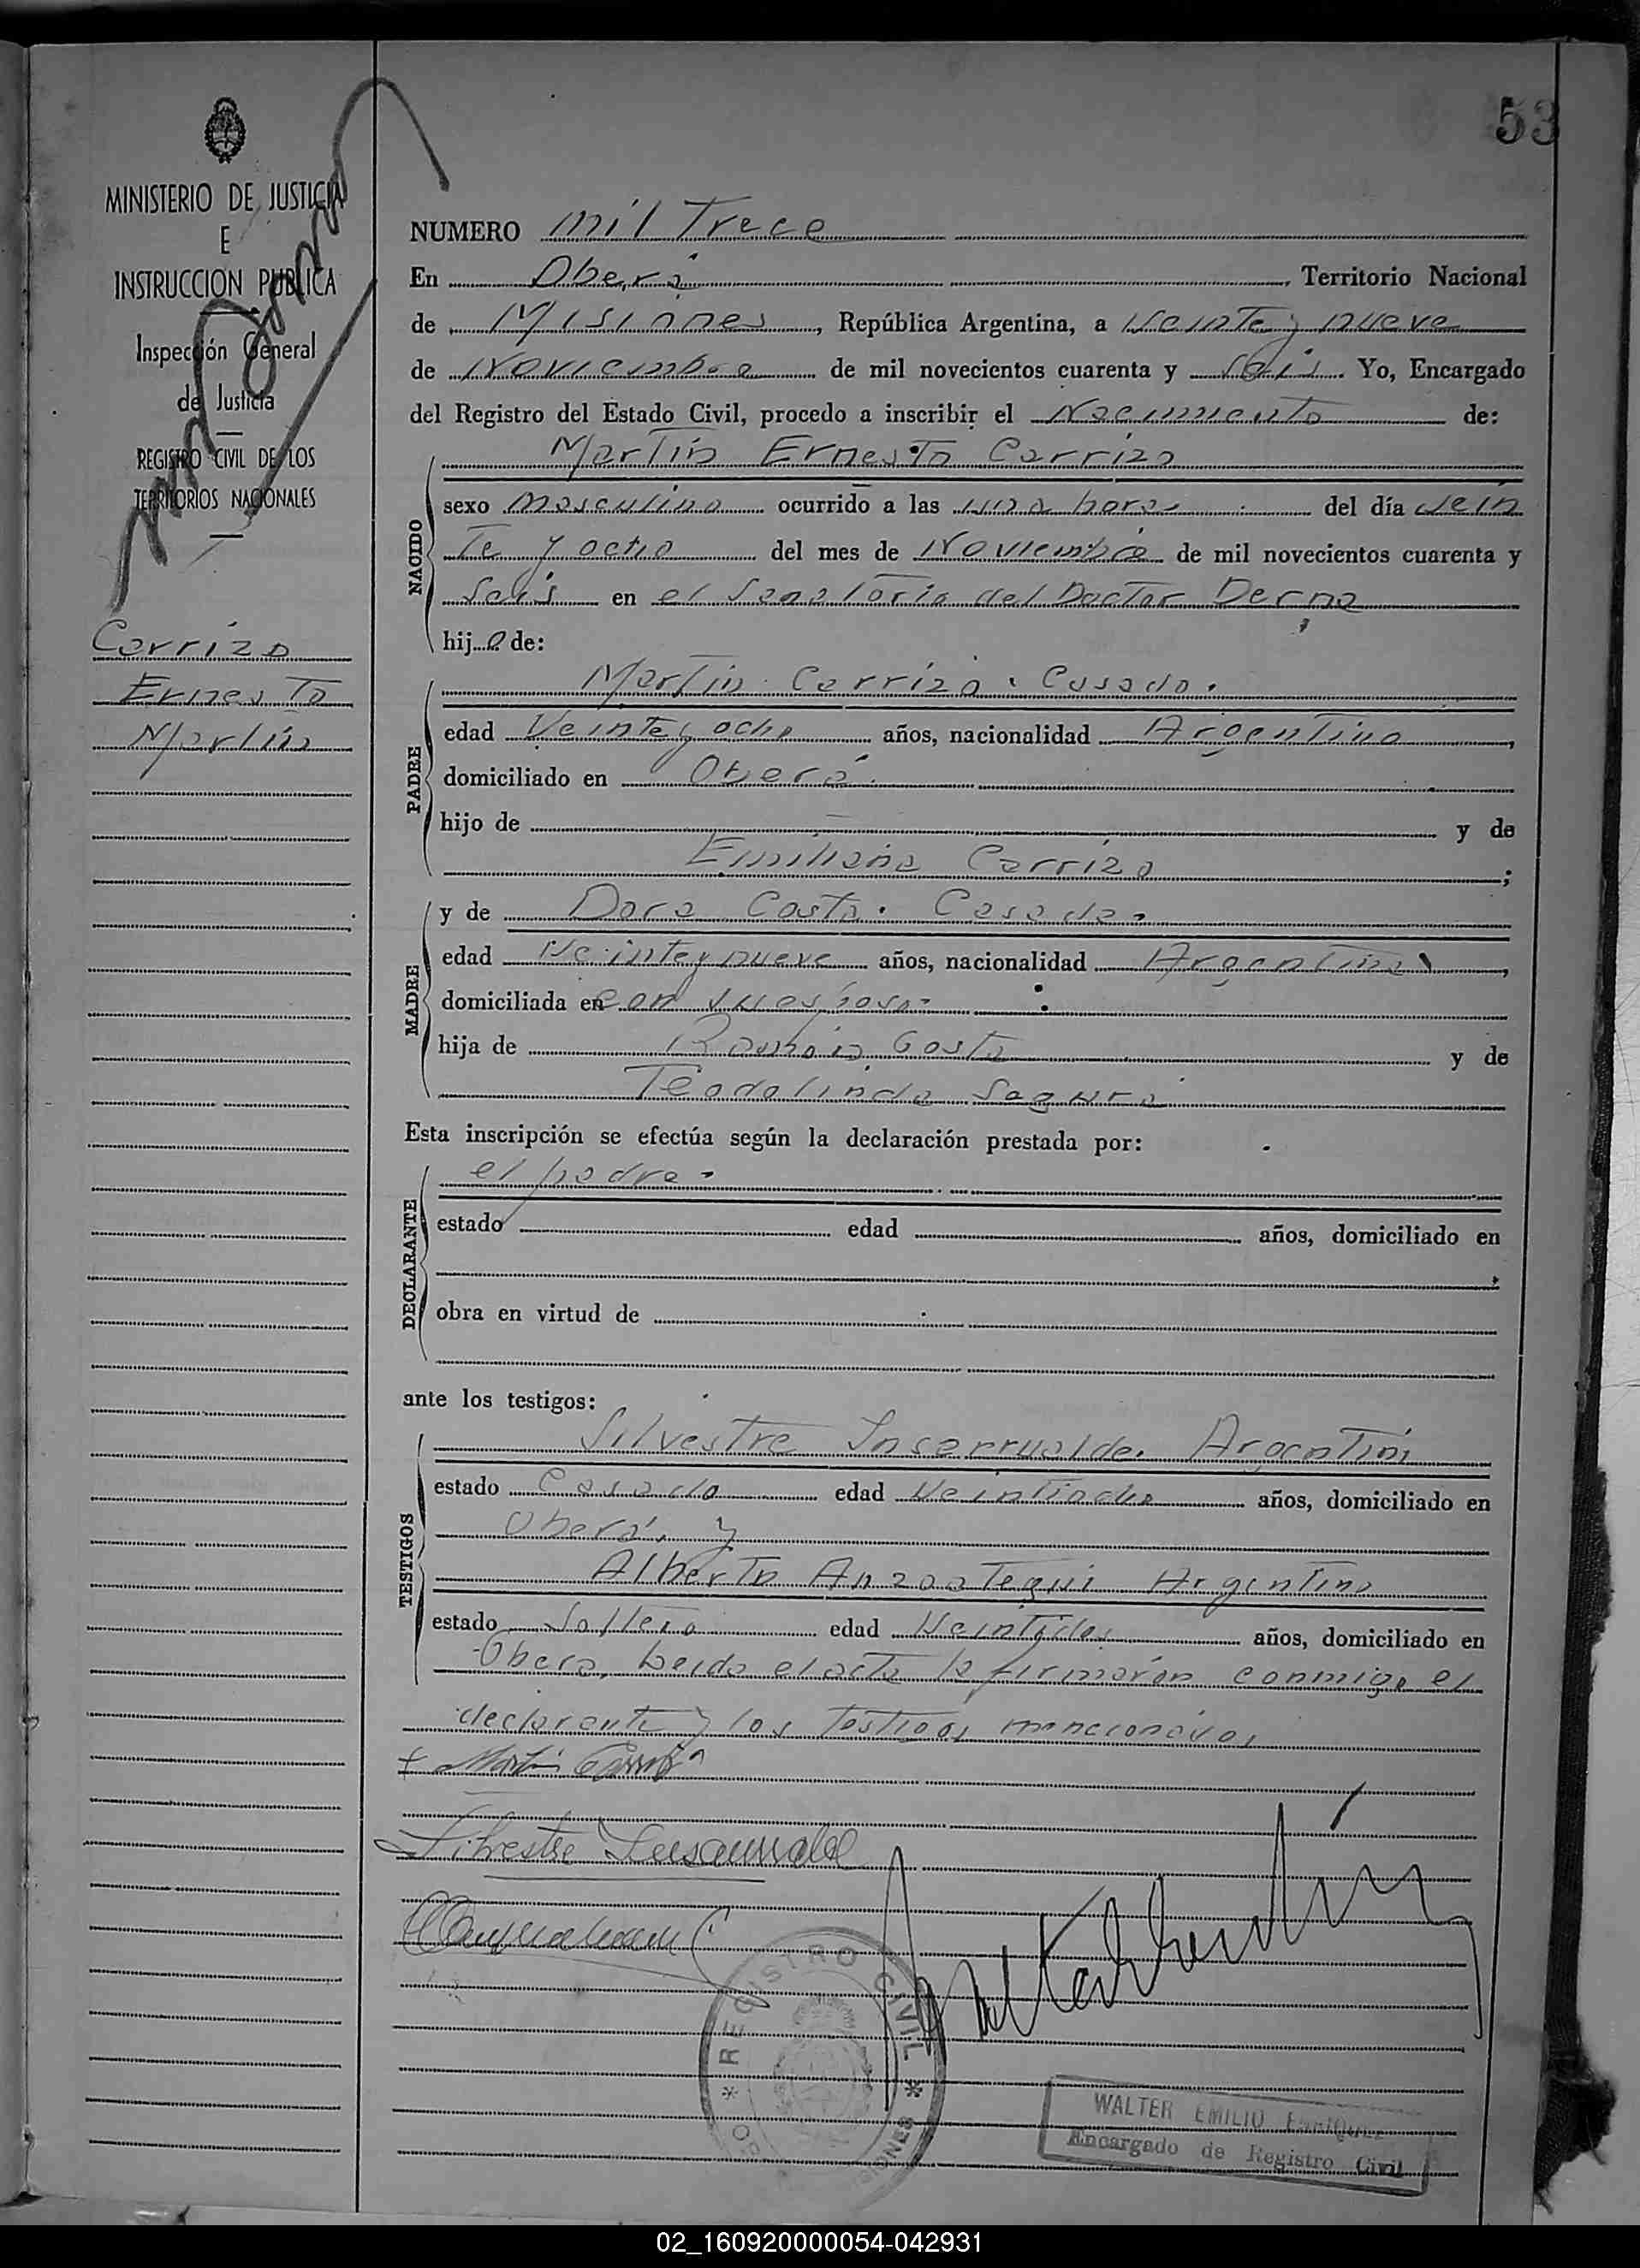 53
MINISTERIO DE JUSTICIA
E
INSTRUCCION PUBLICA
Inspección General
de Justicia
REGISTRO CIVIL DE LOS
TERRITORIOS NACIONALES
Carrizo
Ernesto
Martín
NUMERO mil Trece
En Oberá, Territorio Nacional
de Misiones, República Argentina, a veinte y nueve
de Noviembre de mil novecientos cuarenta y seis. Yo, Encargado
del Registro del Estado Civil, procedo a inscribir el Nacimiento de:
NACIDO
Martín Ernesto Carrizo
sexo masculino ocurrido a las una horas del día vein
te y ocho del mes de Noviembre de mil novecientos cuarenta y
seis en el Sanatorio del Doctor Derna
hijo de:
PADRE
Martín Carrizo. Casado.
edad Veinte y ocho años, nacionalidad Argentino,
domiciliado en Oberá.
hijo de y de
Emiliana Carrizo;
MADRE
y de Dora Costa. Casada.
edad Veinte y nueve años, nacionalidad Argentina,
domiciliada en con su esposo.
hija de Ramón Costa y de
Teodolinda
Esta inscripción se efectúa según la declaración prestada por:
DECLARANTE
el padre.
estado edad años, domiciliado en
obra en virtud de
ante los testigos:
TESTIGOS
Silvestre Insaurralde. Argentino
estado Casado edad Veintiocho años, domiciliado en
Oberá. y
Alberto Anzoategui Argentino
estado Soltero edad Veintidos años, domiciliado en
Oberá. Leida el acta la firmarón conmigo el
declarante y los testigos mencionados
Martín Carrizo
Silvestre Insaurralde
REGISTRO CIVIL
WALTER EMILIO ENRIQUEZ
Encargado de Registro Civil
02_160920000054-042931